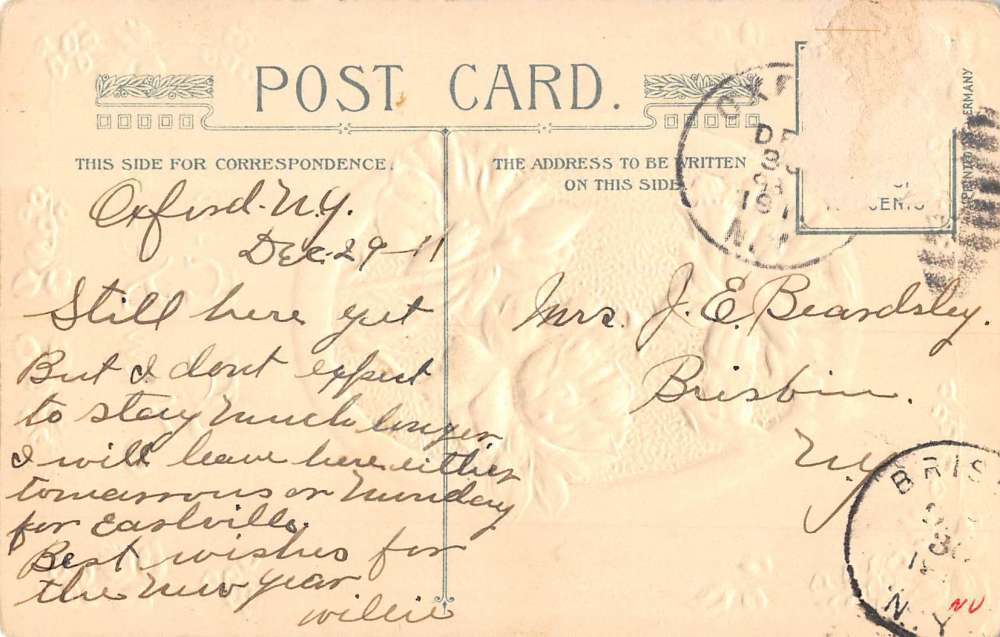 POST CARD.
THIS SIDE FOR CORRESPONDENCE.
THE ADDRESS TO BE WRITTEN
ON THIS SIDE.
Oxford. N.Y.
Dec. 29-11
Still here yet
But I dont expect
to stay much longer.
I will leave here either
tomarrow or Munday
for Eastville.
Best wishes for
the New Year
Willie
Mrs. J. E. Beardsley.
Brisbin.
N.Y.
OXF
DE
30
191
N.Y.
CENTS
PRINTED
ERMANY
BRIS
30
N.Y.
NU